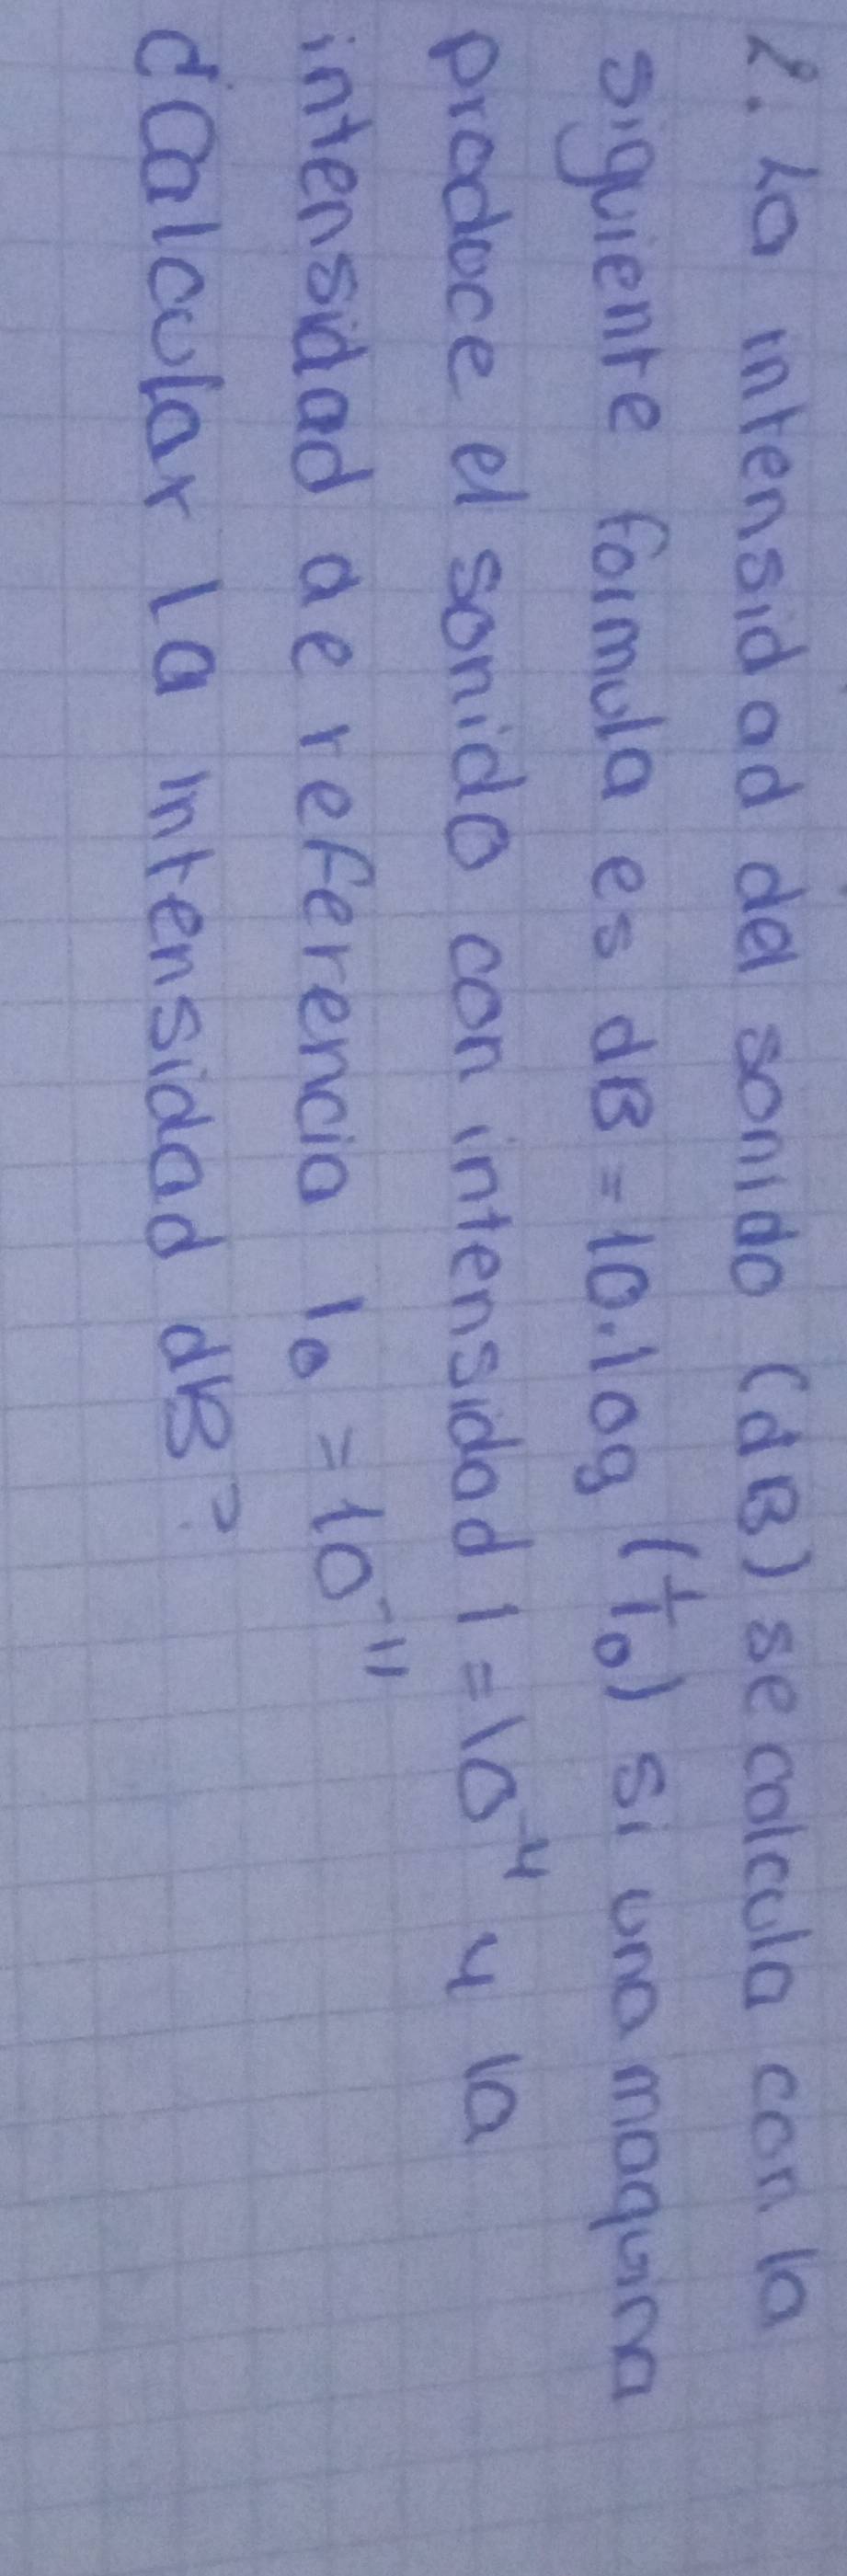 2. La intensidad del sonido (dB) se calcula con la
siguiente formula es dB = 10.log (I/I₀) si una maquina
produce el sonido con intensidad I = 10⁻⁴ y la
intensidad de referencia I₀ = 10⁻¹¹
d Calcular la intensidad dB?